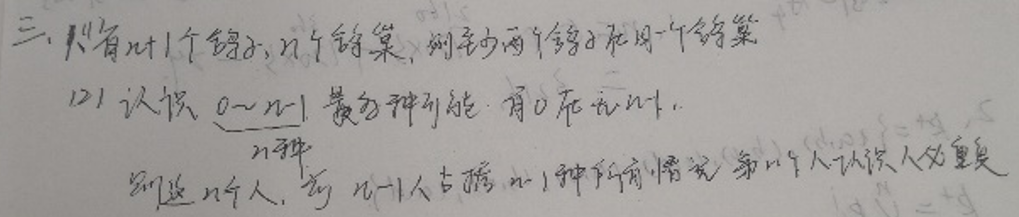 三、(1) 有n+1个鸽子, n个鸽巢, 则至少两个鸽子在同一个鸽巢
(2) 认识 0~n-1 最多种可能. 有0在无n-1.
n种
则这n个人, 前n-1人占据n-1种所有情况 第n个人认识人必重复